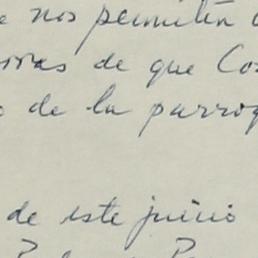 nos permiten
de que Cos
de la parroq
de este juicio